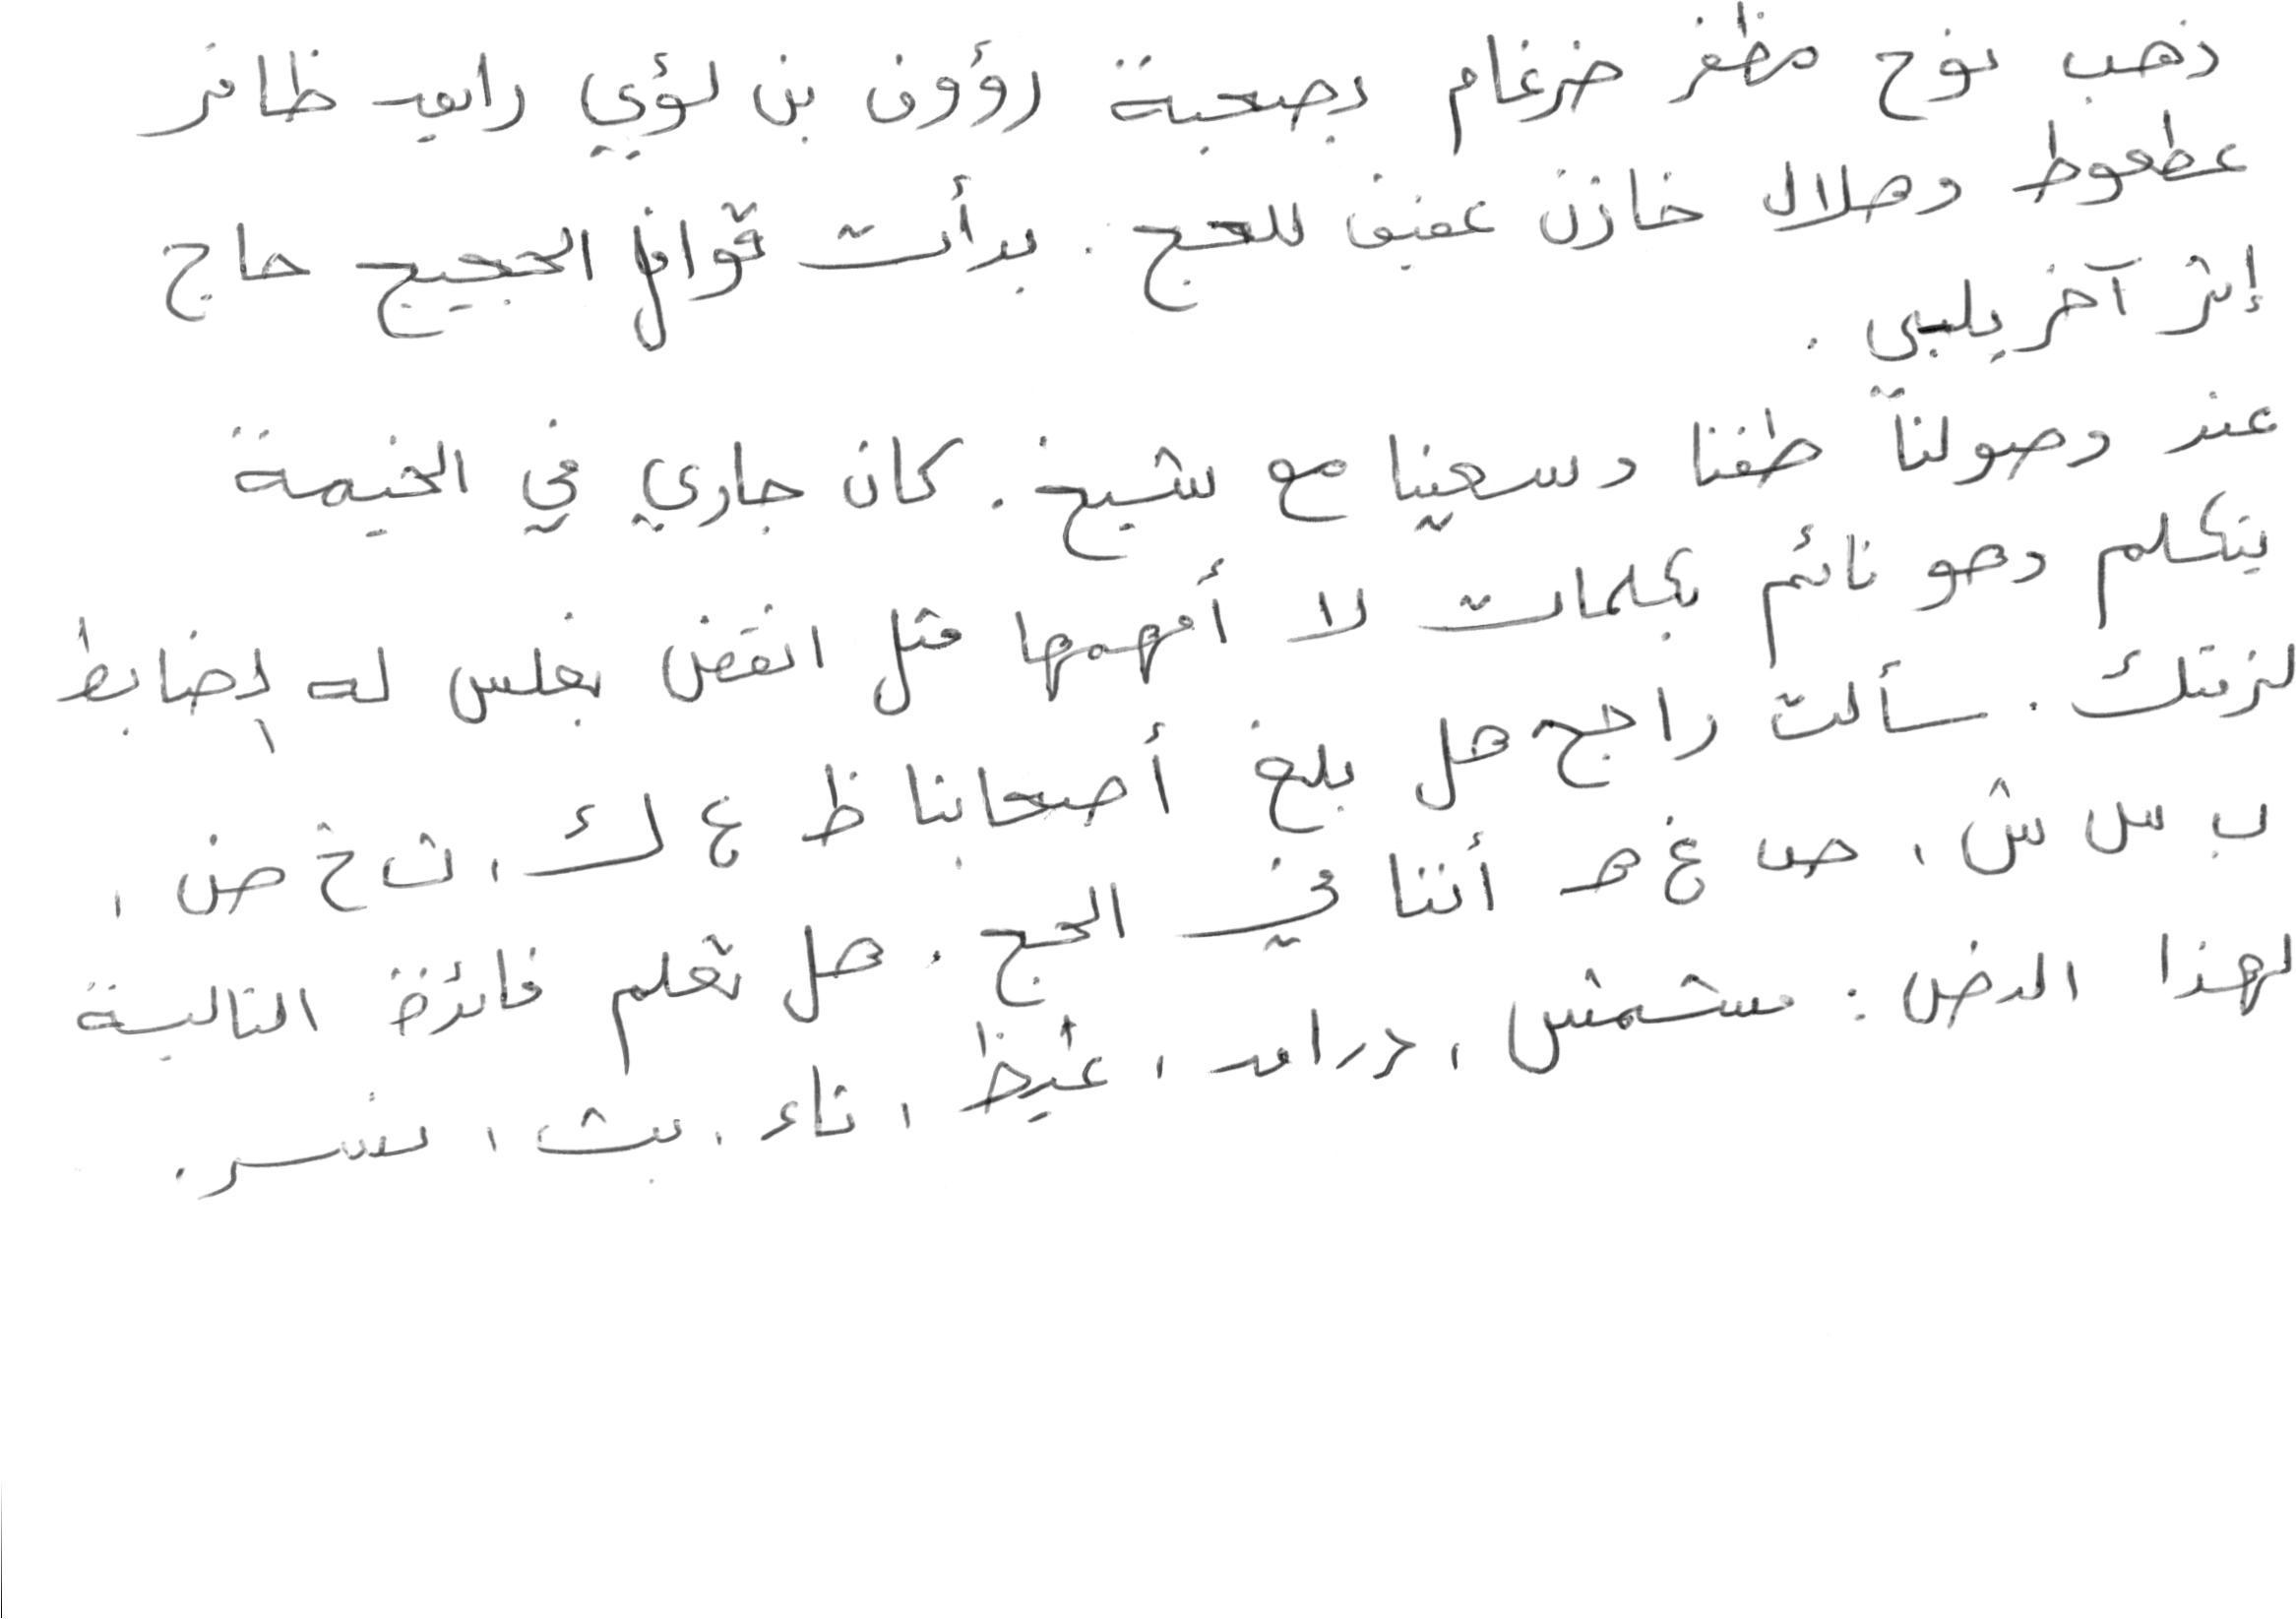 ذهب نوح مظفر ضرغام بصحبة رؤوف بن لؤي رايد ظافر
عطعوط وهلال خازن عفيف للحج . بدأت قوافل الحجيج حاج
إثر آخر يلبي .
عند وصولنا طفنا وسعينا مع شيخ . كان جاري في الخيمة
يتكلم وهو نائم بكلمات لا أفهمها مثل انقض بغلس له إضابط
لزمتك . سألت راجح هل بلغ أصحابنا ظ ع ك ، ث خ ض ،
ب س ش ، ص غ ه أننا في الحج . هل تعلم فائزة التالية
لهذا الرض : مشمش ، درامد ، غيظ ، ناء ، بث ، نسر .